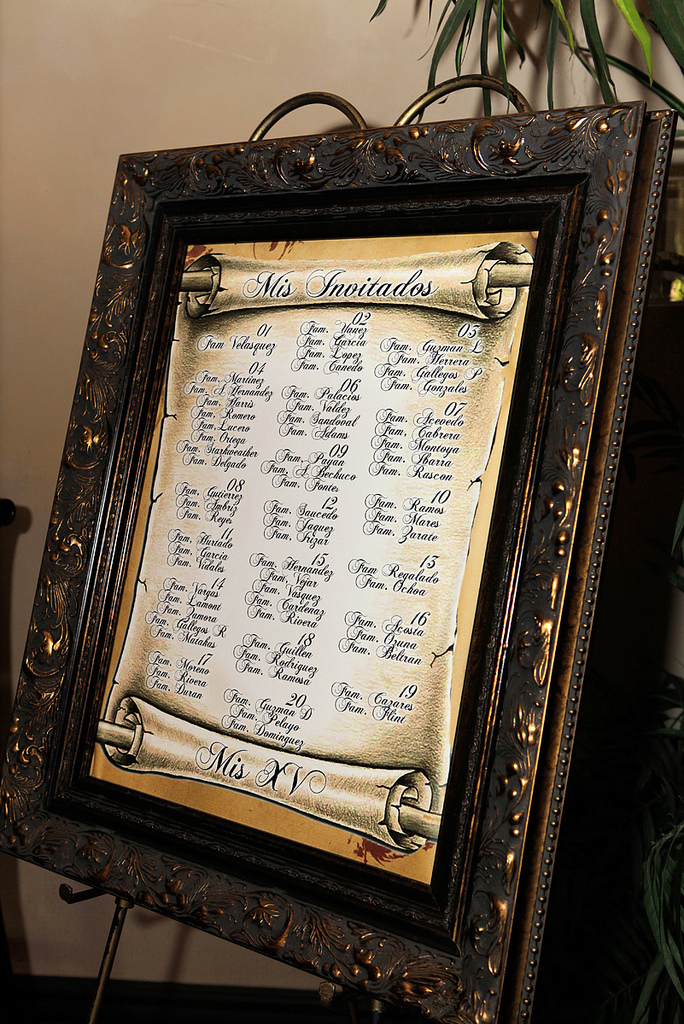 Mis Invitados
01
Fam Velasquez
02
Fam. Yanez
Fam. Garcia
Fam. Lopez
Fam. Canedo
03
Fam. Guzman L
Fam. Herrera
Fam. Gallegos P
Fam. Gonzales
04
Fam. Martinez
Fam. A Hernandez
Fam. Harris
Fam. Romero
Fam. Lucero
Fam. Ortega
Fam. Starkweather
Fam. Delgado
06
Fam. Palacios
Fam. Valdez
Fam. Sandoval
Fam. Adams
07
Fam. Acevedo
Fam. Cabrera
Fam. Montoya
Fam. Ibarra
Fam. Rascon
08
Fam. Gutierrez
Fam. Imbriz
Fam. Reyes
09
Fam. Payan
Fam. A Bechuco
Fam. Fontes
10
Fam. Ramos
Fam. Mares
Fam. Zarate
11
Fam. Hurtado
Fam. Garcia
Fam. Vidales
12
Fam. Saucedo
Fam. Jaquez
Fam. Irizar
13
Fam Regalado
Fam. Ochoa
14
Fam. Vargas
Fam. Lamont
Fam. Zamora
Fam. Gallegos R
Fam. Matakas
15
Fam. Hernandez
Fam. Vejar
Fam. Vasquez
Fam. Cardenaz
Fam. Rivera
16
Fam. Acosta
Fam. Ozuna
Fam. Beltran
17
Fam. Moreno
Fam. Rivera
Fam. Duran
18
Fam. Guillen
Fam. Rodriguez
Fam. Ramosa
19
Fam. Cazares
Fam. Flint
20
Fam. Guzman D
Fam. Pelayo
Fam. Dominguez
Mis XV